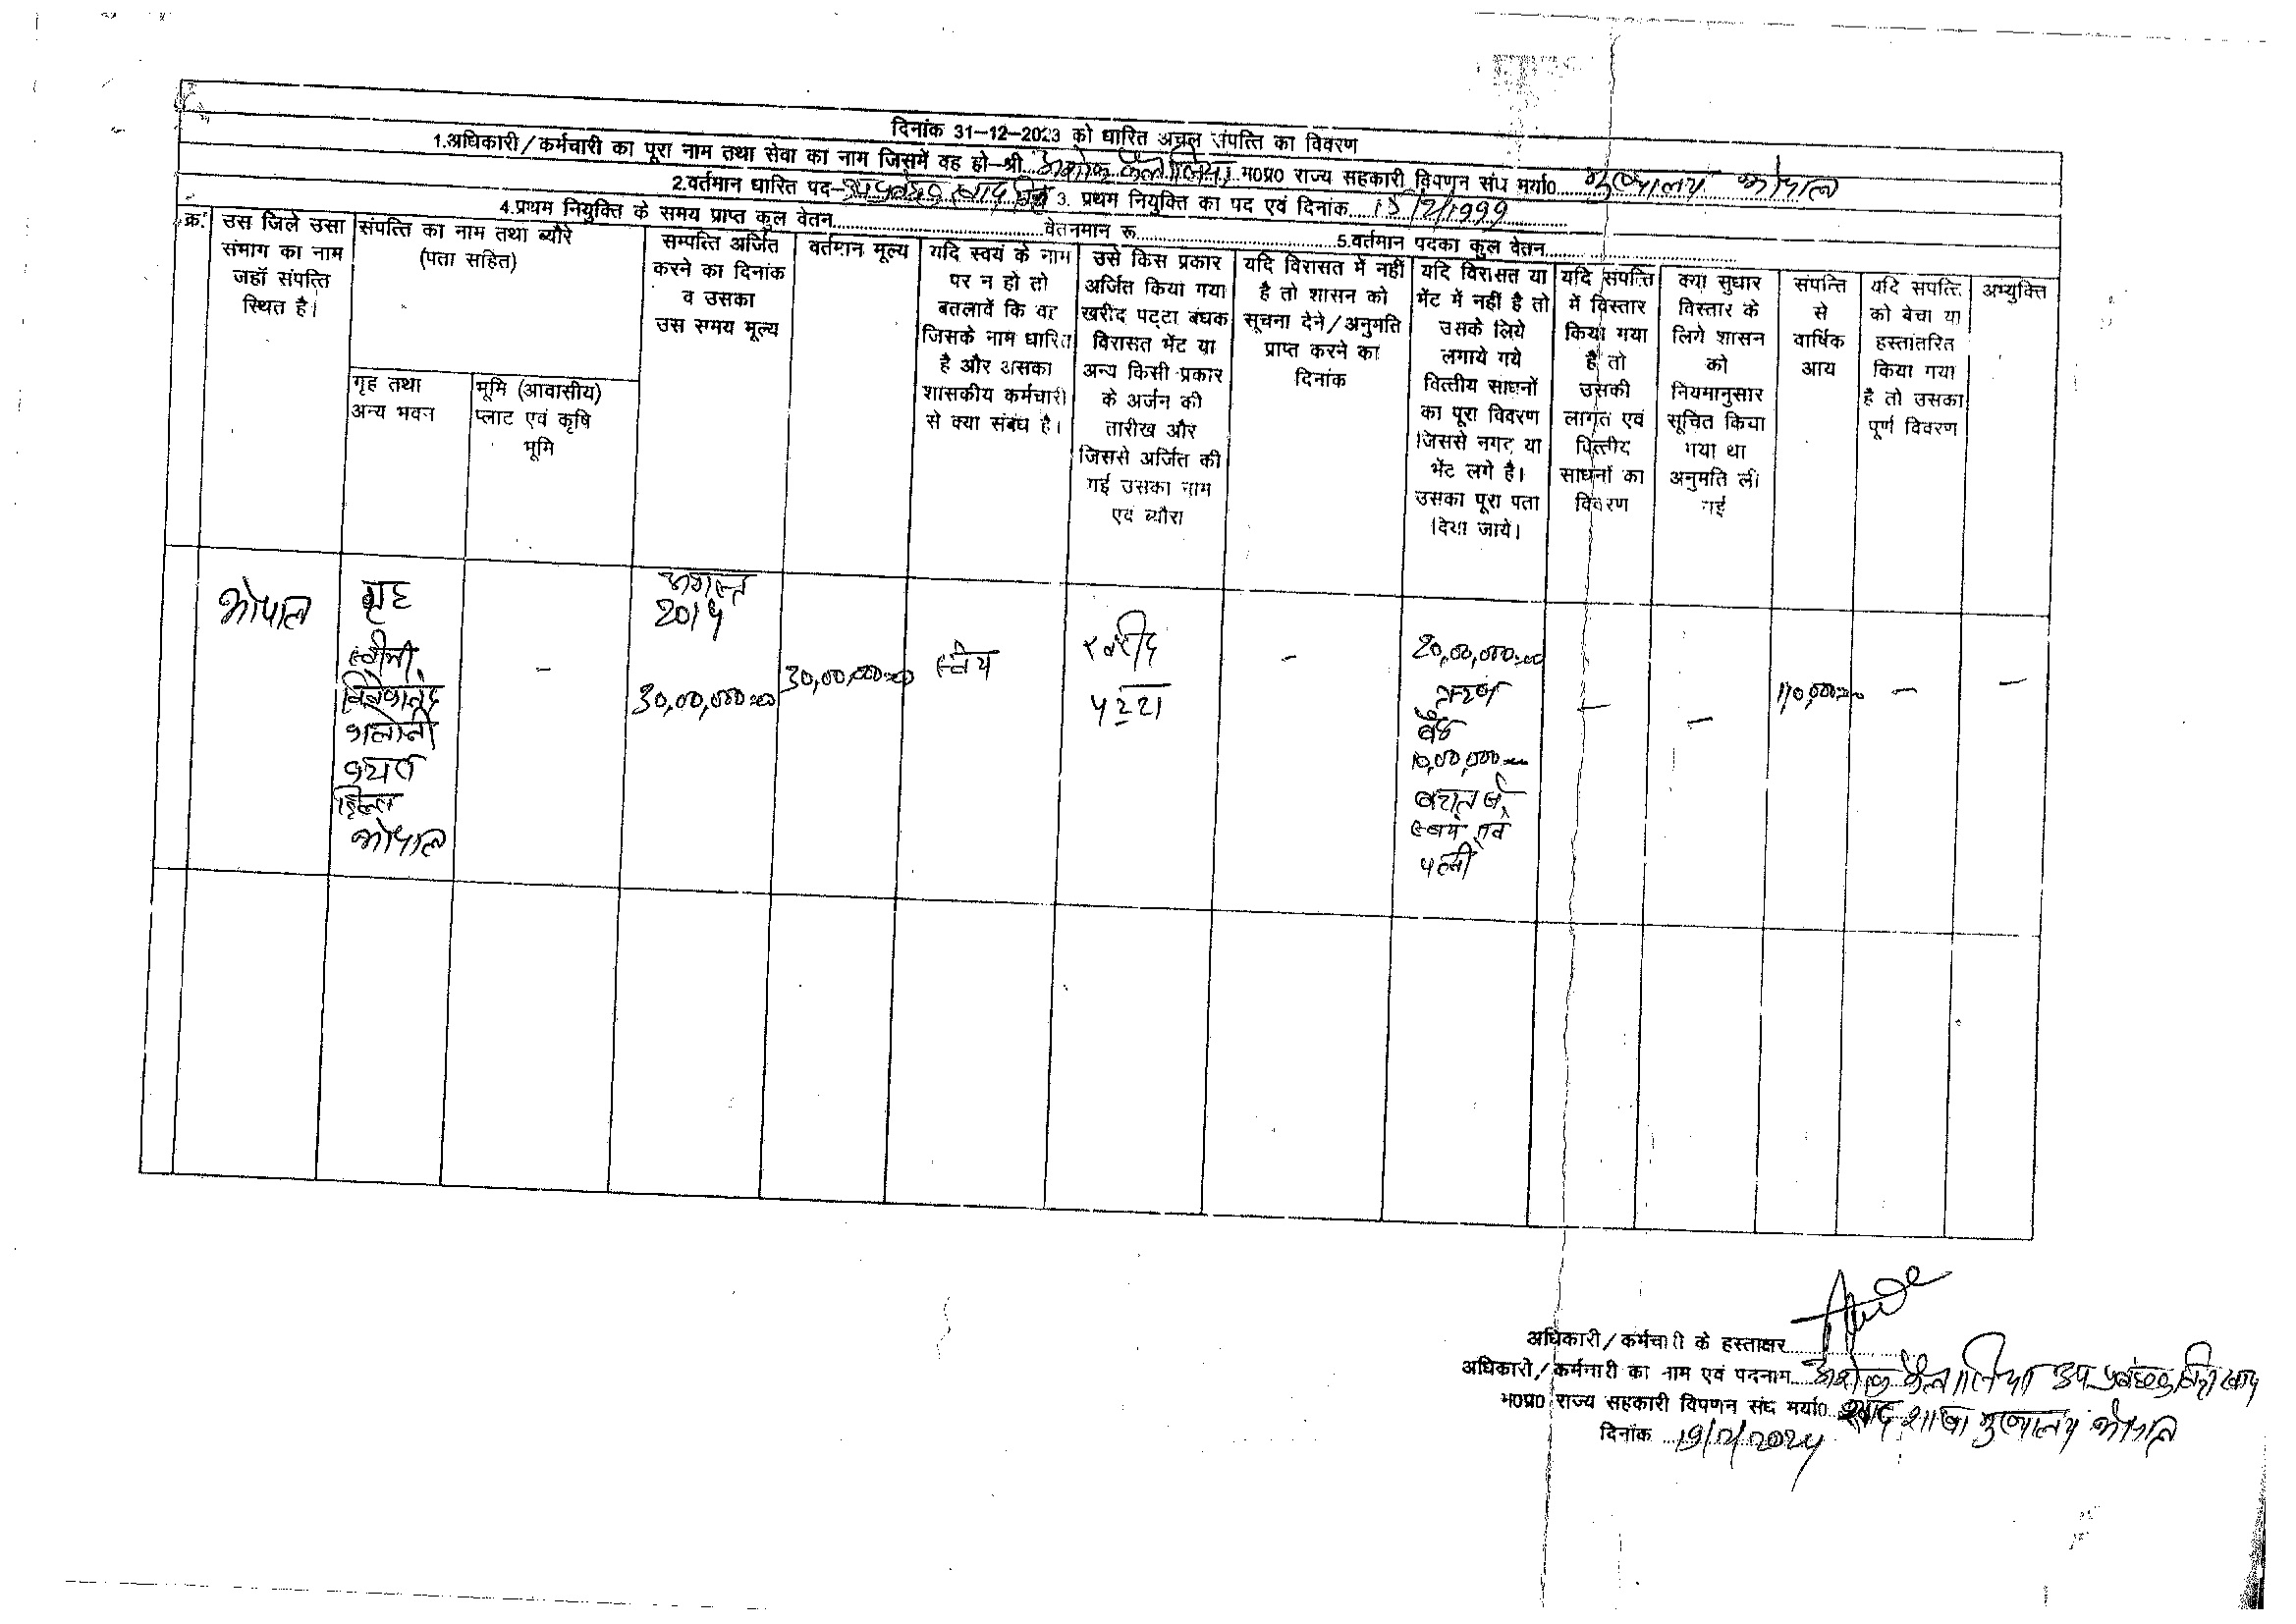 दिनांक 31-12-2023 को धारित अचल संपत्ति का विवरण
1.अधिकारी/कर्मचारी का पूरा नाम तथा सेवा का नाम जिसमें वह हो-श्री अशोक कैलासिया म0प्र0 राज्य सहकारी विपणन संघ मर्या0 मुख्यालय भोपाल
2.वर्तमान धारित पद- उप प्रबंधक खाद 3. प्रथम नियुक्ति का पद एवं दिनांक
4.प्रथम नियुक्ति के समय प्राप्त कुल वेतन वेतनमान रू. 5.वर्तमान पदका कुल वेतन
क्र.
उस जिले उसा
संभाग का नाम
जहॉ संपत्ति
स्थित है।
संपत्ति का नाम तथा ब्यौरे
(पता सहित)
गृह तथा
अन्य भवन
भूमि (आवासीय)
प्लाट एवं कृषि
भूमि
सम्पत्ति अर्जित
करने का दिनांक
व उसका
उस समय मूल्य
वर्तमान मूल्य
यदि स्वयं के नाम
पर न हो तो
बतलावें कि वह
जिसके नाम धारित
है और असका
शासकीय कर्मचारी
से क्या संबंध है।
उसे किस प्रकार
अर्जित किया गया
खरीद पट्टा बंधक
विरासत भेंट या
अन्य किसी प्रकार
के अर्जन की
तारीख और
जिससे अर्जित की
गई उसका नाम
एवं ब्यौरा
यदि विरासत में नहीं
है तो शासन को
सूचना देने/अनुमति
प्राप्त करने का
दिनांक
यदि विरासत या
भेंट में नहीं है तो
उसके लिये
लगाये गये
वित्तीय साधनों
का पूरा विवरण
जिससे नगद या
भेंट लगे है।
उसका पूरा पता
दिया जाये।
यदि संपत्ति
में विस्तार
किया गया
है तो
उसकी
लागत एवं
वित्तीय
साधनों का
विवरण
क्या सुधार
विस्तार के
लिगे शासन
को
नियमानुसार
सूचित किया
गया था
अनुमति ली
गई
संपत्ति
से
वार्षिक
आय
यदि संपत्ति
को बेचा या
हस्तांतरित
किया गया
है तो उसका
पूर्ण विवरण
अभ्युक्ति
भोपाल
गृह
विवेकानंद
कालोनी
भोपाल
-
अगस्त
30,00,000=00
30,00,000=00
स्वयं
खरीद
पट्टा
-
20,00,000=00
ऋण
बैंक
10,00,000=00
बचत से
स्वयं एवं
पत्नी
-
-
-
-
अधिकारी/कर्मचारी के हस्ताक्षर
अधिकारी/कर्मचारी का नाम एवं पदनाम अशोक कैलासिया उप प्रबंधक
म0प्र0 राज्य सहकारी विपणन संघ मर्या0 खाद शाखा मुख्यालय भोपाल
दिनांक